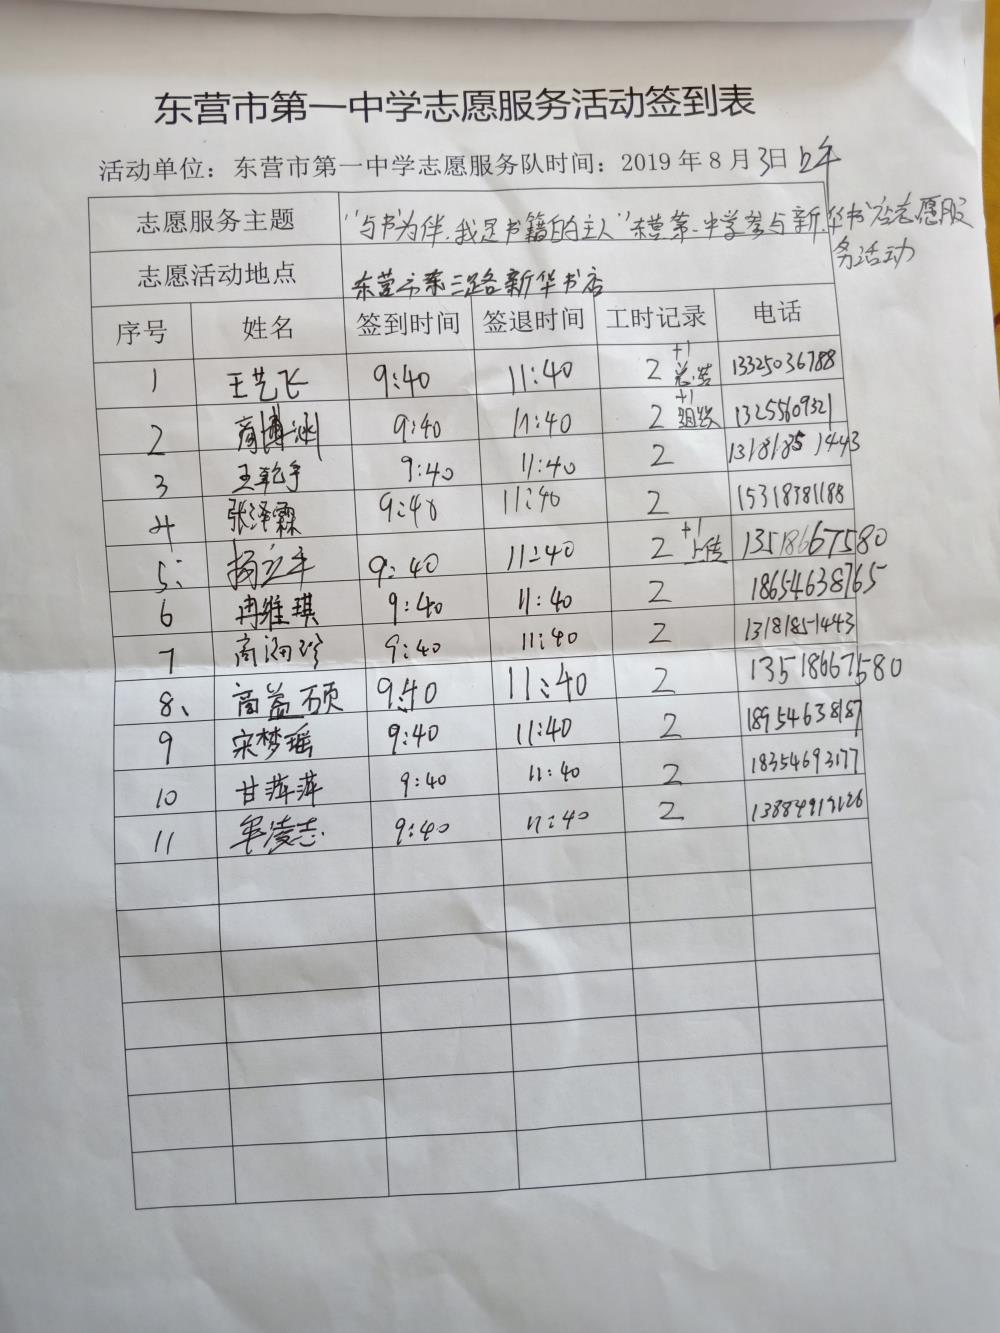 东营市第一中学志愿服务活动签到表
活动单位：东营市第一中学志愿服务队时间：2019年8月3日上午
志愿服务主题 "与书为伴，我是书籍的主人"东营第一中学参与新华书店志愿服
务活动
志愿活动地点 东营市东三路新华书店
序号 姓名 签到时间 签退时间 工时记录 电话
1 王艺飞 9:40 11:40 2 +1 总结 13325036788
2 商博渊 9:40 11:40 2 +1 组织 13255609321
3 王 9:40 11:40 2 13181851443
4 张泽霖 9:40 11:40 2 15318381188
5、 杨立平 9:40 11:40 2 +1 上传 13518667580
6 冉维琪 9:40 11:40 2 18654638765
7 商 9:40 11:40 2 13181851443
8、 高益硕 9:40 11:40 2 13518667580
9 宋梦瑶 9:40 11:40 2 18954638187
10 甘萍萍 9:40 11:40 2 18354693177
11 凌志 9:40 11:40 2